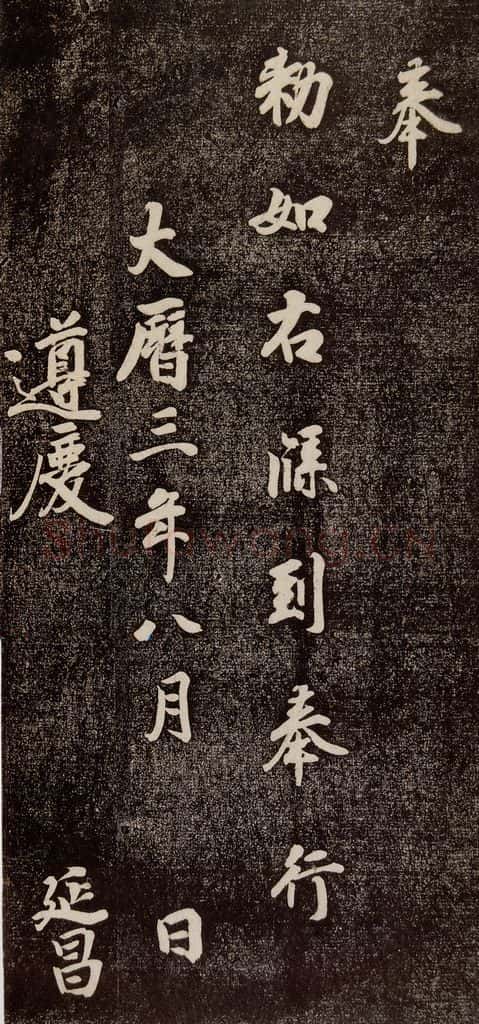 奉
勑如右牒到奉行
大曆三年八月 日
遵慶 延昌